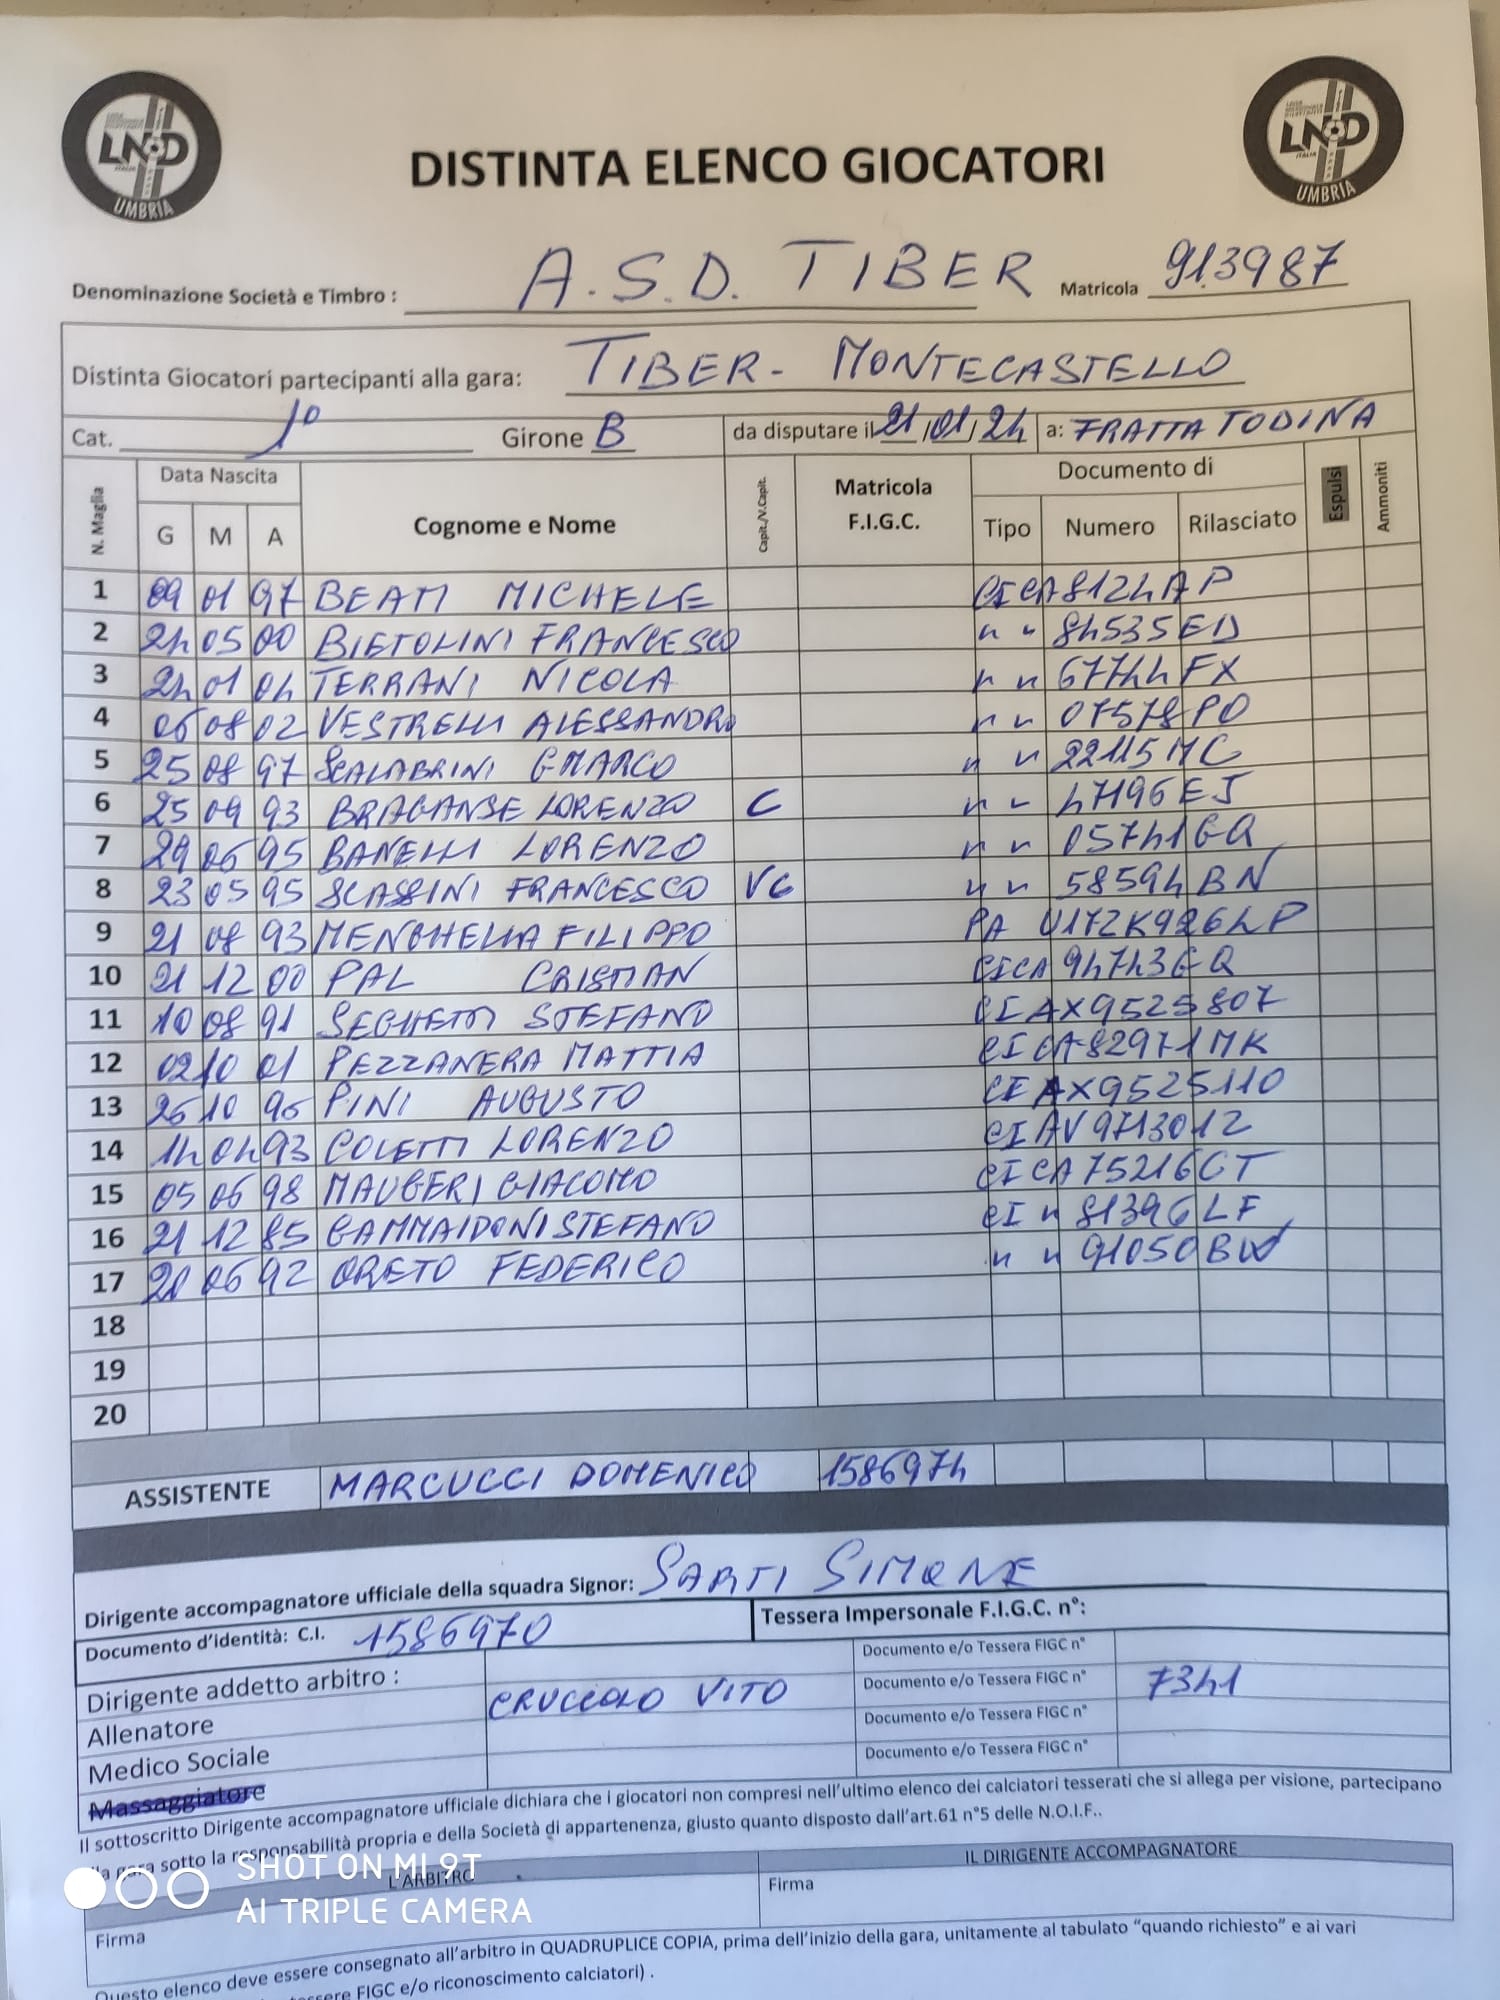 LND
ITALIA
UMBRIA
LND
ITALIA
UMBRIA
DISTINTA ELENCO GIOCATORI
Denominazione Società e Timbro : A.S.D. TIBER Matricola 913987
Distinta Giocatori partecipanti alla gara: TIBER - MONTECASTELLO
Cat. 1° Girone B da disputare il 21/01/24 a: FRATTA TODINA
N. Maglia Data Nascita Cognome e Nome Capit./V.Capit. Matricola F.I.G.C. Documento di Espulsi Ammoniti
G M A Tipo Numero Rilasciato
1 09 01 97 BEATI MICHELE CI CA8124AP
2 24 05 00 BIETOLINI FRANCESCO " " 84535ED
3 24 01 04 TERRANI NICOLA " " 67744FX
4 06 08 02 VESTRELLI ALESSANDRO " " 07578PO
5 25 08 97 SCALABRINI GMARCO " " 22115MC
6 25 09 93 BRAGANSE LORENZO C " " 47196EJ
7 29 06 95 BANELLI LORENZO " " 05741GQ
8 23 05 95 SCASSINI FRANCESCO VC " " 58594BN
9 21 08 93 MENGHELLA FILIPPO PA U172K926LP
10 21 12 00 PAL CRISTIAN CI CA 94743GQ
11 10 08 91 SEGHETTI STEFANO CI AX9525807
12 02 10 01 PEZZANERA MATTIA CI CA82971MK
13 26 10 96 PINI AUGUSTO CI AX9525110
14 14 04 93 COLETTI LORENZO CI AV9713012
15 05 06 98 MAUGERI GIACOMO CI CA75216CT
16 21 12 85 GAMMAIDONI STEFANO CI " 81396LF
17 20 06 92 ORETO FEDERICO " " 91050BW
18
19
20
ASSISTENTE MARCUCCI DOMENICO 1586974
Dirigente accompagnatore ufficiale della squadra Signor: SARTI SIMONE
Documento d'identità: C.I. 1586970 Tessera Impersonale F.I.G.C. n°:
Dirigente addetto arbitro : Documento e/o Tessera FIGC n°
Allenatore CRUCIOLO VITO Documento e/o Tessera FIGC n° 7341
Medico Sociale Documento e/o Tessera FIGC n°
Massaggiatore Documento e/o Tessera FIGC n°
Il sottoscritto Dirigente accompagnatore ufficiale dichiara che i giocatori non compresi nell'ultimo elenco dei calciatori tesserati che si allega per visione, partecipano
gara sotto la responsabilità propria e della Società di appartenenza, giusto quanto disposto dall'art.61 n°5 delle N.O.I.F..
L'ARBITRO IL DIRIGENTE ACCOMPAGNATORE
Firma Firma
Questo elenco deve essere consegnato all'arbitro in QUADRUPLICE COPIA, prima dell'inizio della gara, unitamente al tabulato "quando richiesto" e ai vari
tessere FIGC e/o riconoscimento calciatori) .
SHOT ON MI 9T
AI TRIPLE CAMERA